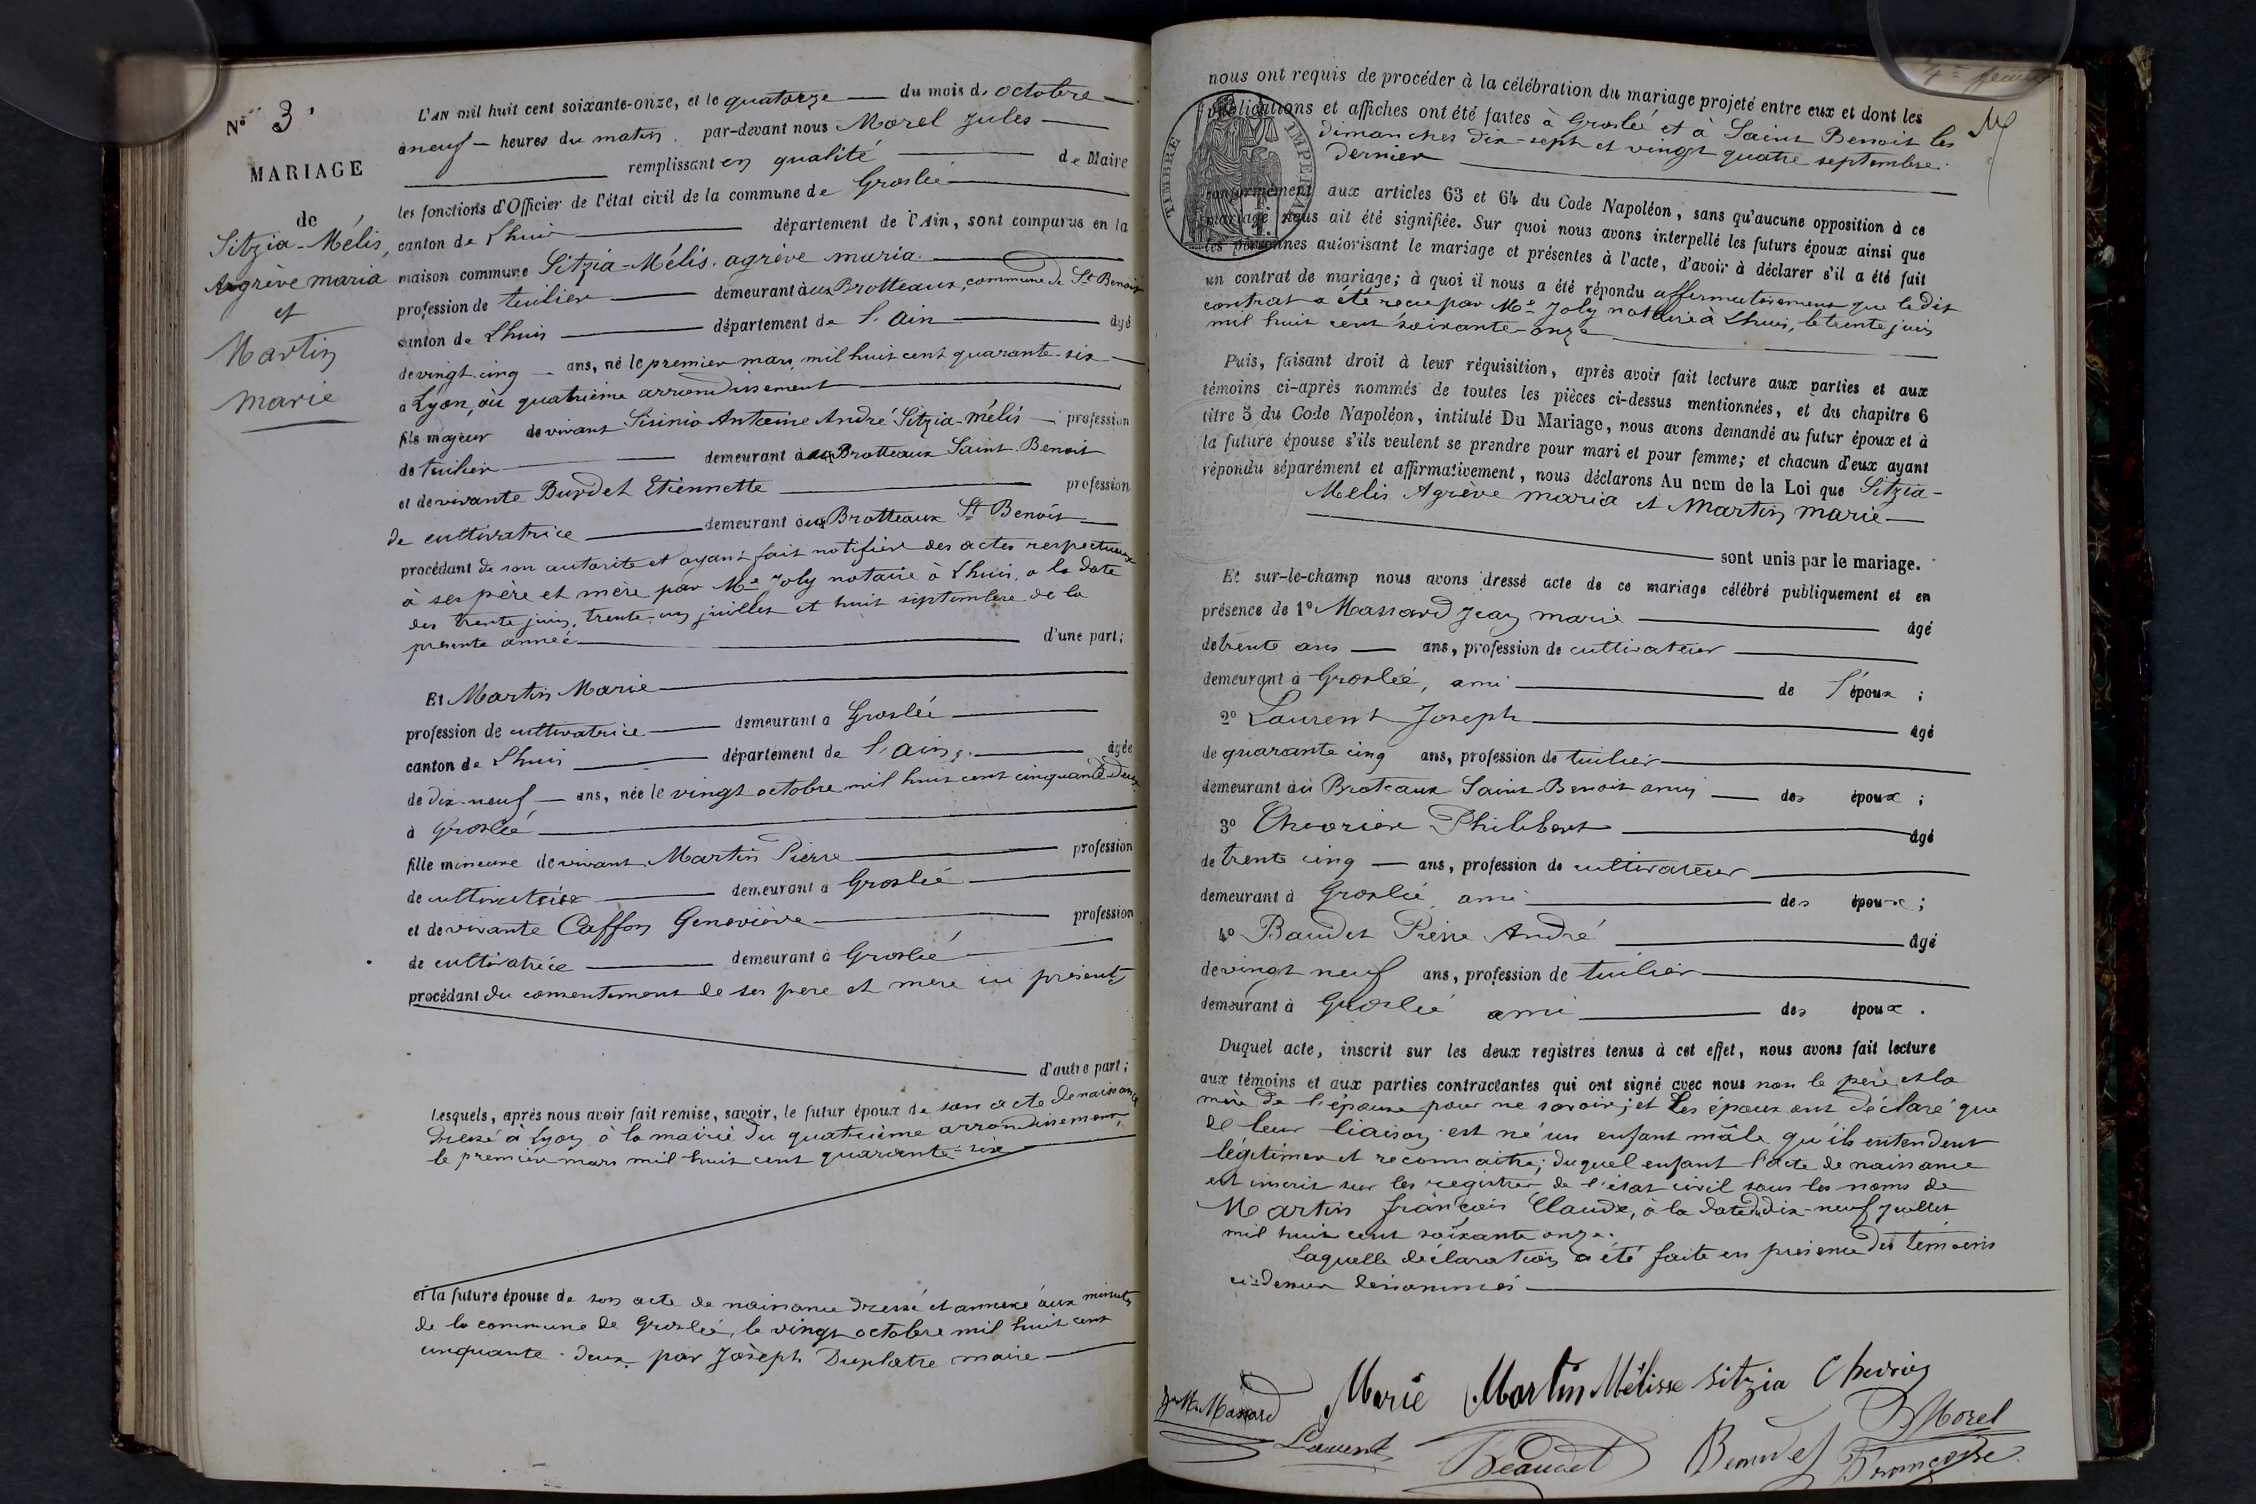 No 3.
MARIAGE
de
Sitzia-Mélis,
Agrève maria
et
Martin
marie
L'AN mil huit cent soixante-onze, et le quatorze du mois d. octobre
à neuf heures du matin par-devant nous Morel Jules
remplissant en qualité de Maire
les fonctions d'Officier de l'état civil de la commune de Groslée
canton de Lhuis département de l'Ain, sont comparus en la
maison commune Sitzia-Mélis. agrève maria.
profession de tuilier demeurant à aux Brotteaux, commune de St Benoit
canton de Lhuis département de l'Ain âgé
de vingt-cinq ans, né le premier mars, mil huit cent quarante-six
à Lyon, au quatrième arrondissement
fils majeur de vivant Sisinio Antoine André Sitzia-Mélis profession
de tuilier demeurant à aux Brotteaux Saint-Benoit
et de vivante Burdet Etiennette profession
de cultivatrice demeurant à aux Brotteaux St Benoit
procédant de son autorité et ayant fait notifier des actes respectueux
à ses père et mère par Me Joly notaire à Lhuis, a la date
des trente juin, trente-un juillet et huit septembre de la
présente année d'une part;
Et Martin Marie
profession de cultivatrice demeurant à Groslée
canton de Lhuis département de l'Ain, âgée
de dix-neuf ans, née le vingt octobre mil huit cent cinquante-deux
à Groslée
fille mineure de vivant Martin Pierre profession
de cultivatrice demeurant à Groslée
et de vivante Caffon Geneviève profession
de cultivatrice demeurant à Groslée
procédant du consentement de ses père et mère ici présents
d'autre part;
Lesquels, après nous avoir fait remise, savoir, le futur époux de son acte de naissance
dressé à Lyon à la mairie du quatrième arrondissement,
le premier mars mil huit cent quarante-six
et la future épouse de son acte de naissance dressé et annexé aux minutes
de la commune de Groslée, le vingt octobre mil huit cent
cinquante-deux par Joseph Duplatre maire
nous ont requis de procéder à la célébration du mariage projeté entre eux et dont les
publications et affiches ont été faites à Groslée et à Saint Benoit les
dimanches dix-sept et vingt quatre septembre
dernier
TIMBRE IMPERIAL
conformément aux articles 63 et 64 du Code Napoléon, sans qu'aucune opposition à ce
mariage nous ait été signifiée. Sur quoi nous avons interpellé les futurs époux ainsi que
les personnes autorisant le mariage et présentes à l'acte, d'avoir à déclarer s'il a été fait
un contrat de mariage; à quoi il nous a été répondu affirmativement que le dit
contrat a été reçu par Me Joly notaire à Lhuis, le trente juin
mil huit cent soixante-onze
Puis, faisant droit à leur réquisition, après avoir fait lecture aux parties et aux
témoins ci-après nommés de toutes les pièces ci-dessus mentionnées, et du chapitre 6
titre 5 du Code Napoléon, intitulé Du Mariage, nous avons demandé au futur époux et à
la future épouse s'ils veulent se prendre pour mari et pour femme; et chacun d'eux ayant
répondu séparément et affirmativement, nous déclarons Au nom de la Loi que Sitzia-
Mélis Agrève maria et Martin marie
sont unis par le mariage.
Et sur-le-champ nous avons dressé acte de ce mariage célébré publiquement et en
présence de 1o Massard Jean marie âgé
de trente ans ans, profession de cultivateur
demeurant à Groslée, ami de l'époux;
2o Laurent Joseph âgé
de quarante cinq ans, profession de tuilier
demeurant au Broteaux Saint-Benoit ami des époux;
3o Chevrier Philibert âgé
de trente cinq ans, profession de cultivateur
demeurant à Groslée, ami des époux;
4o Baudet Pierre André âgé
de vingt neuf ans, profession de tuilier
demeurant à Groslée ami des époux.
Duquel acte, inscrit sur les deux registres tenus à cet effet, nous avons fait lecture
aux témoins et aux parties contractantes qui ont signé avec nous non le père et la
mère de l'épouse pour ne savoir; et Les époux ont déclaré que
de leur liaison est né un enfant mâle qu'ils entendent
légitimer et reconnaitre; duquel enfant l'acte de naissance
est inscrit sur les registres de l'état civil sous les noms de
Martin françois Claude, à la date du dix-neuf juillet
mil huit cent soixante onze.
Laquelle déclaration a été faite en présence des témoins
ci-dessus dénommés
Jn Mie Massard Marie Martin Mélisse Sitzia Chevrier
Laurent Beaudet Beaudet Morel